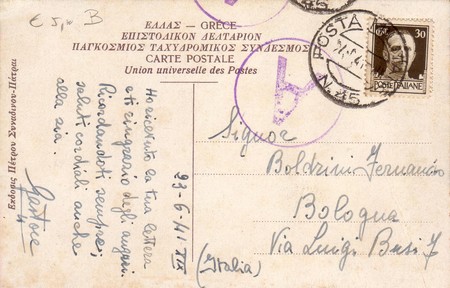 € 5,- B
ΕΛΛΑΣ — GRÈCE
ΕΠΙΣΤΟΛΙΚΟΝ ΔΕΛΤΑΡΙΟΝ
ΠΑΓΚΟΣΜΙΟΣ ΤΑΧΥΔΡΟΜΙΚΟΣ ΣΥΝΔΕΣΜΟΣ
CARTE POSTALE
Union universelle des Postes
POSTA
N. 45
30
POSTE ITALIANE
A
Εκδοσις Πέτρου Συναδινού-Πάτραι
23-6-41 XIX
Ho ricevuto la tua lettera
e ti ringrazio degli auguri.
Ricordandoti sempre,
saluti cordiali anche
alla zia.
Gastone
Signor
Boldrini Fernando
Bologna
Via Luigi Busi 7
(Italia)